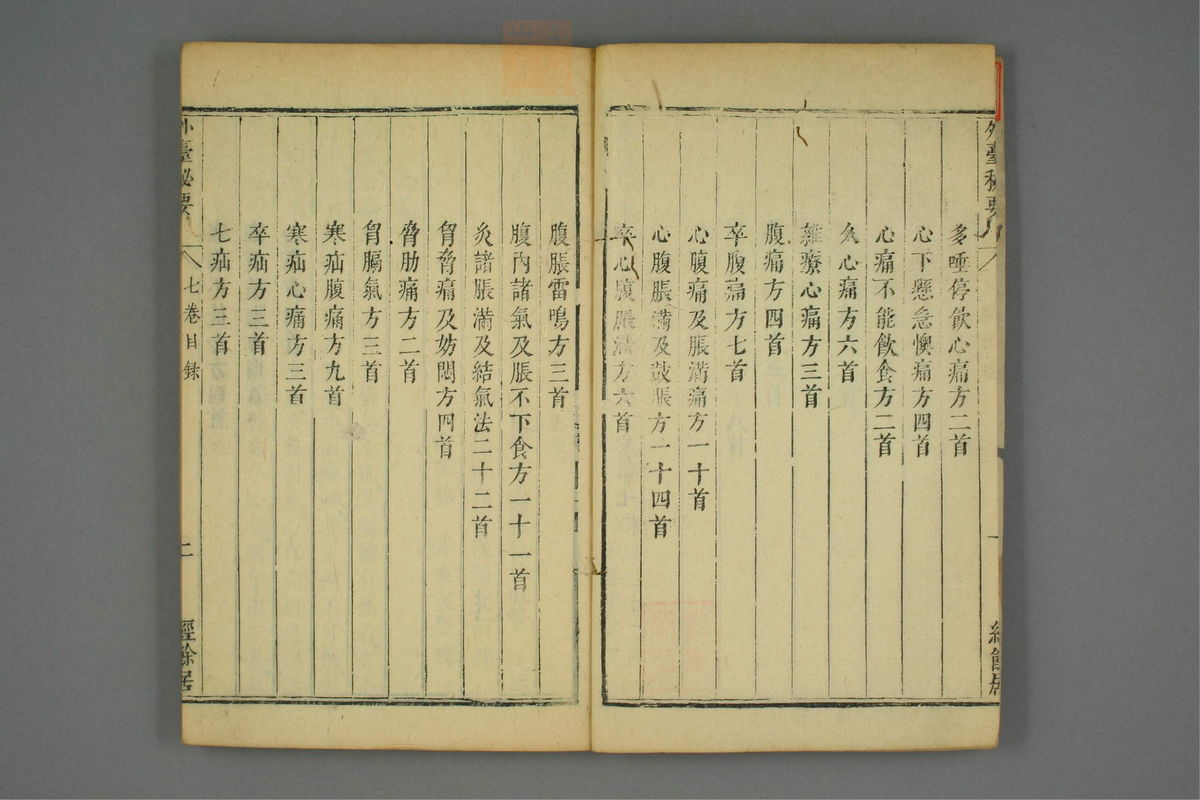 外臺秘要
一
經餘居
多唾停飲心痛方二首
心下懸急懊痛方四首
心痛不能飲食方二首
久心痛方六首
雜療心痛方三首
腹痛方四首
卒腹痛方七首
心腹痛及脹滿痛方一十首
心腹脹滿及鼓脹方一十四首
卒心腹脹滿方六首
腹脹雷鳴方三首
腹內諸氣及脹不下食方一十一首
灸諸脹滿及結氣法二十二首
胷脅痛及妨悶方四首
脅肋痛方二首
胷膈氣方三首
寒疝腹痛方九首
寒疝心痛方三首
卒疝方三首
七疝方三首
外臺秘要
七卷目錄
二
經餘居